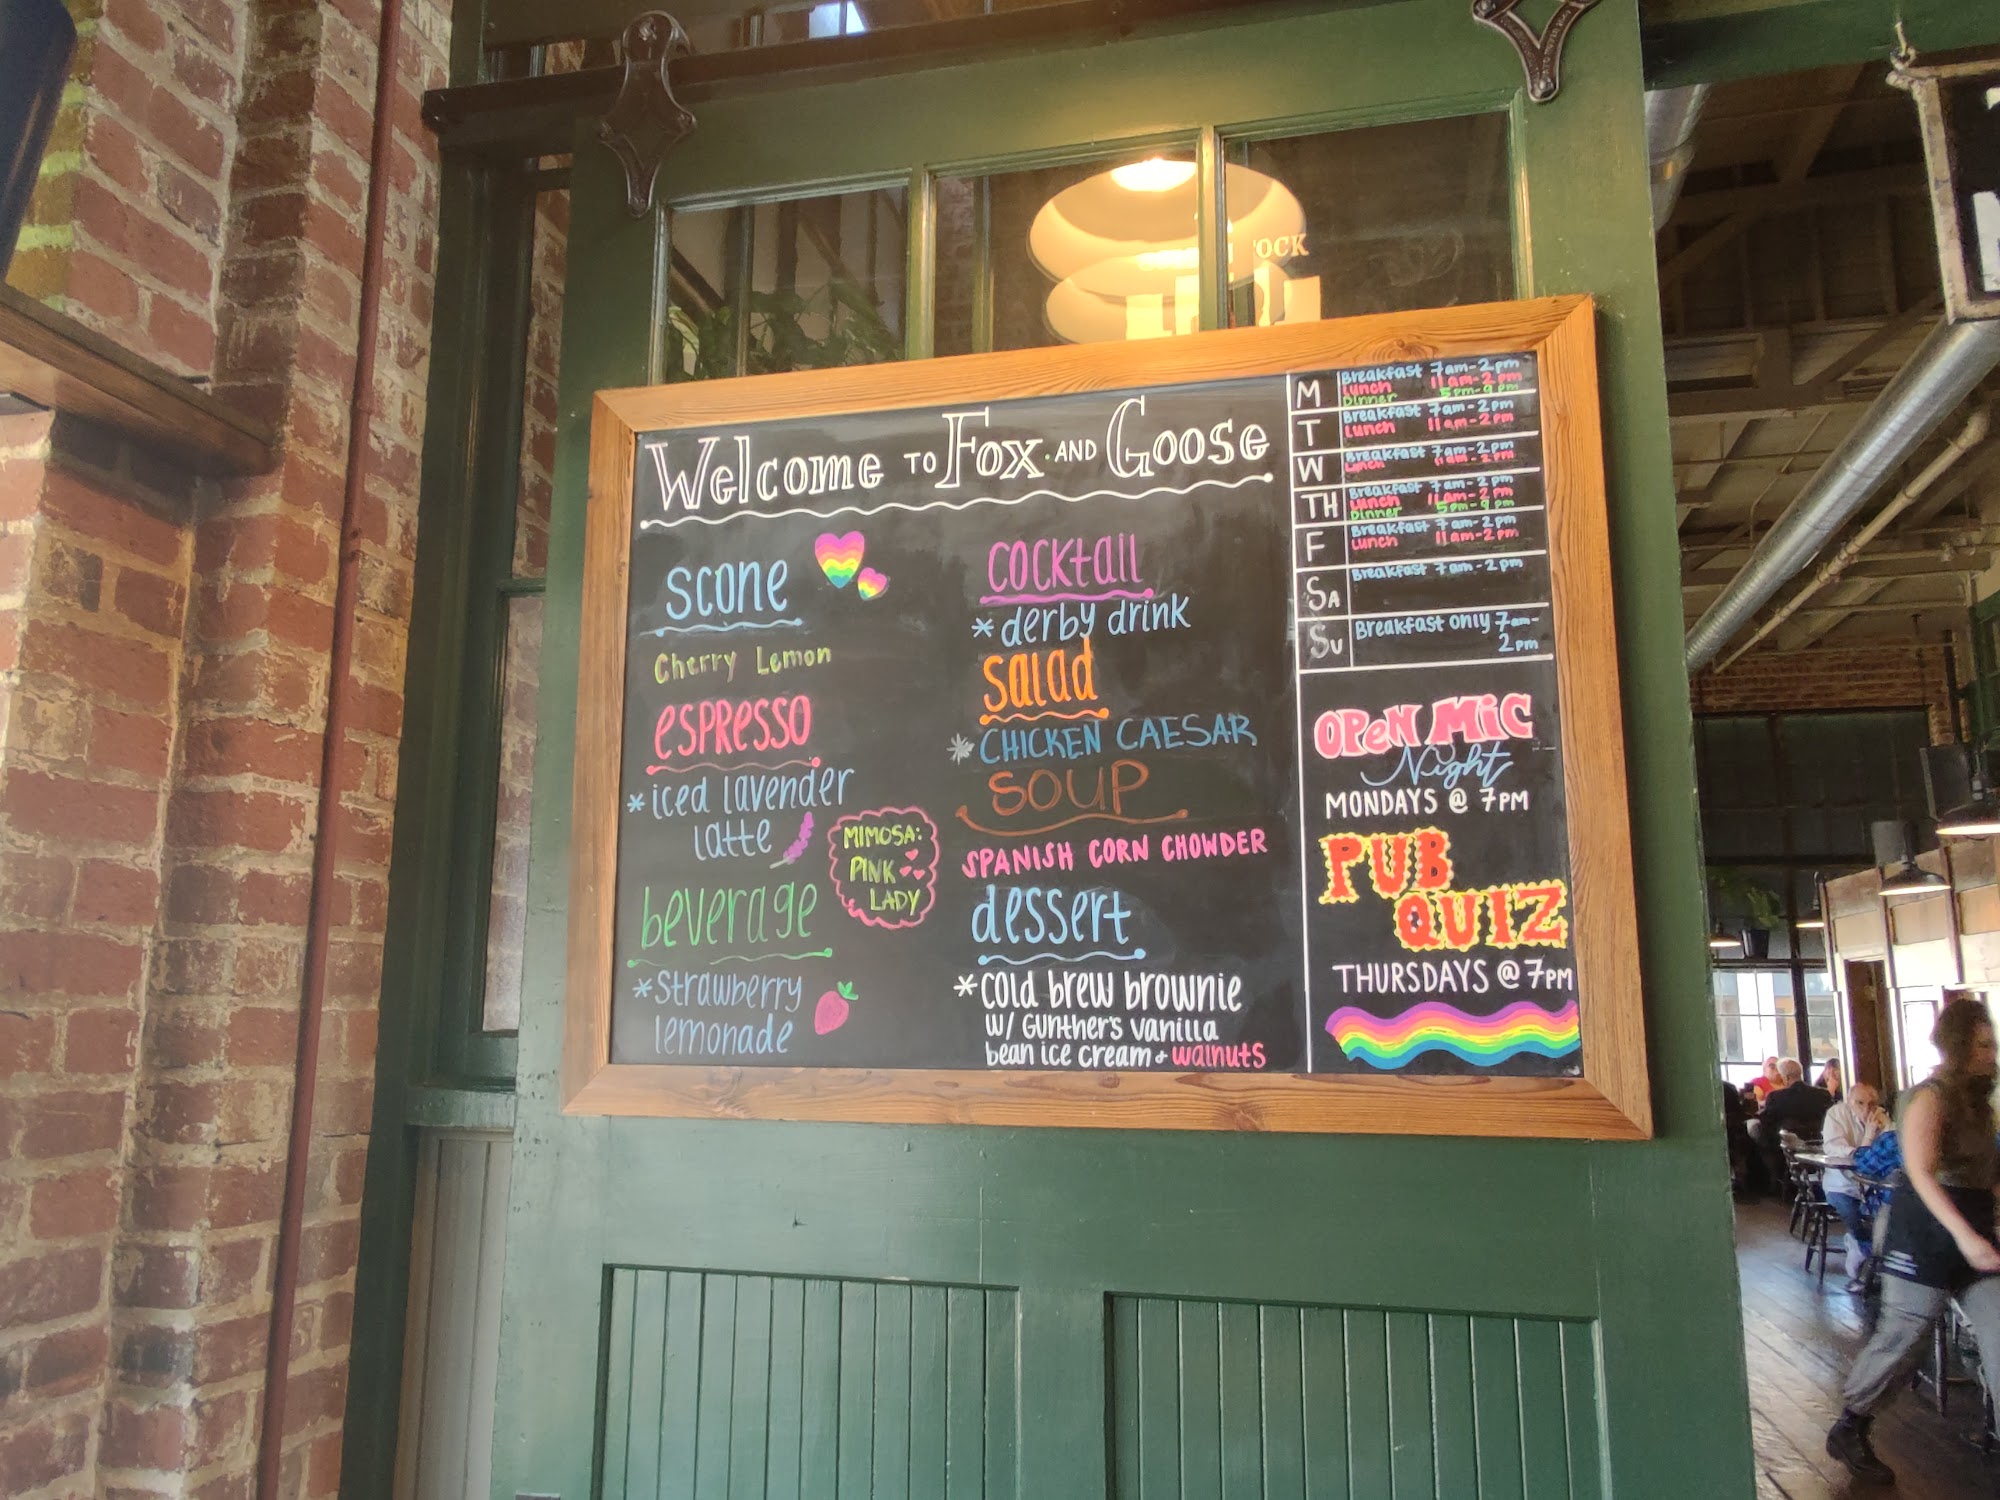 OCK
Welcome to Fox and Goose
scone
Cherry Lemon
espresso
*iced lavender
latte
MIMOSA:
PINK
LADY
beverage
*strawberry
lemonade
cocktail
*derby drink
salad
*CHICKEN CAESAR
SOUP
SPANISH CORN CHOWDER
dessert
*cold brew brownie
w/ Gunther's vanilla
bean ice cream + walnuts
M
Breakfast 7am-2pm
Lunch 11am-2pm
Dinner 5pm-9pm
T
Breakfast 7am-2pm
Lunch 11am-2pm
W
Breakfast 7am-2pm
Lunch 11am-2pm
TH
Breakfast 7am-2pm
Lunch 11am-2pm
Dinner 5pm-9pm
F
Breakfast 7am-2pm
Lunch 11am-2pm
SA
Breakfast 7am-2pm
SU
Breakfast only 7am-
2pm
OPeN MiC
Night
MONDAYS @ 7PM
PUB
QUIZ
THURSDAYS @ 7PM